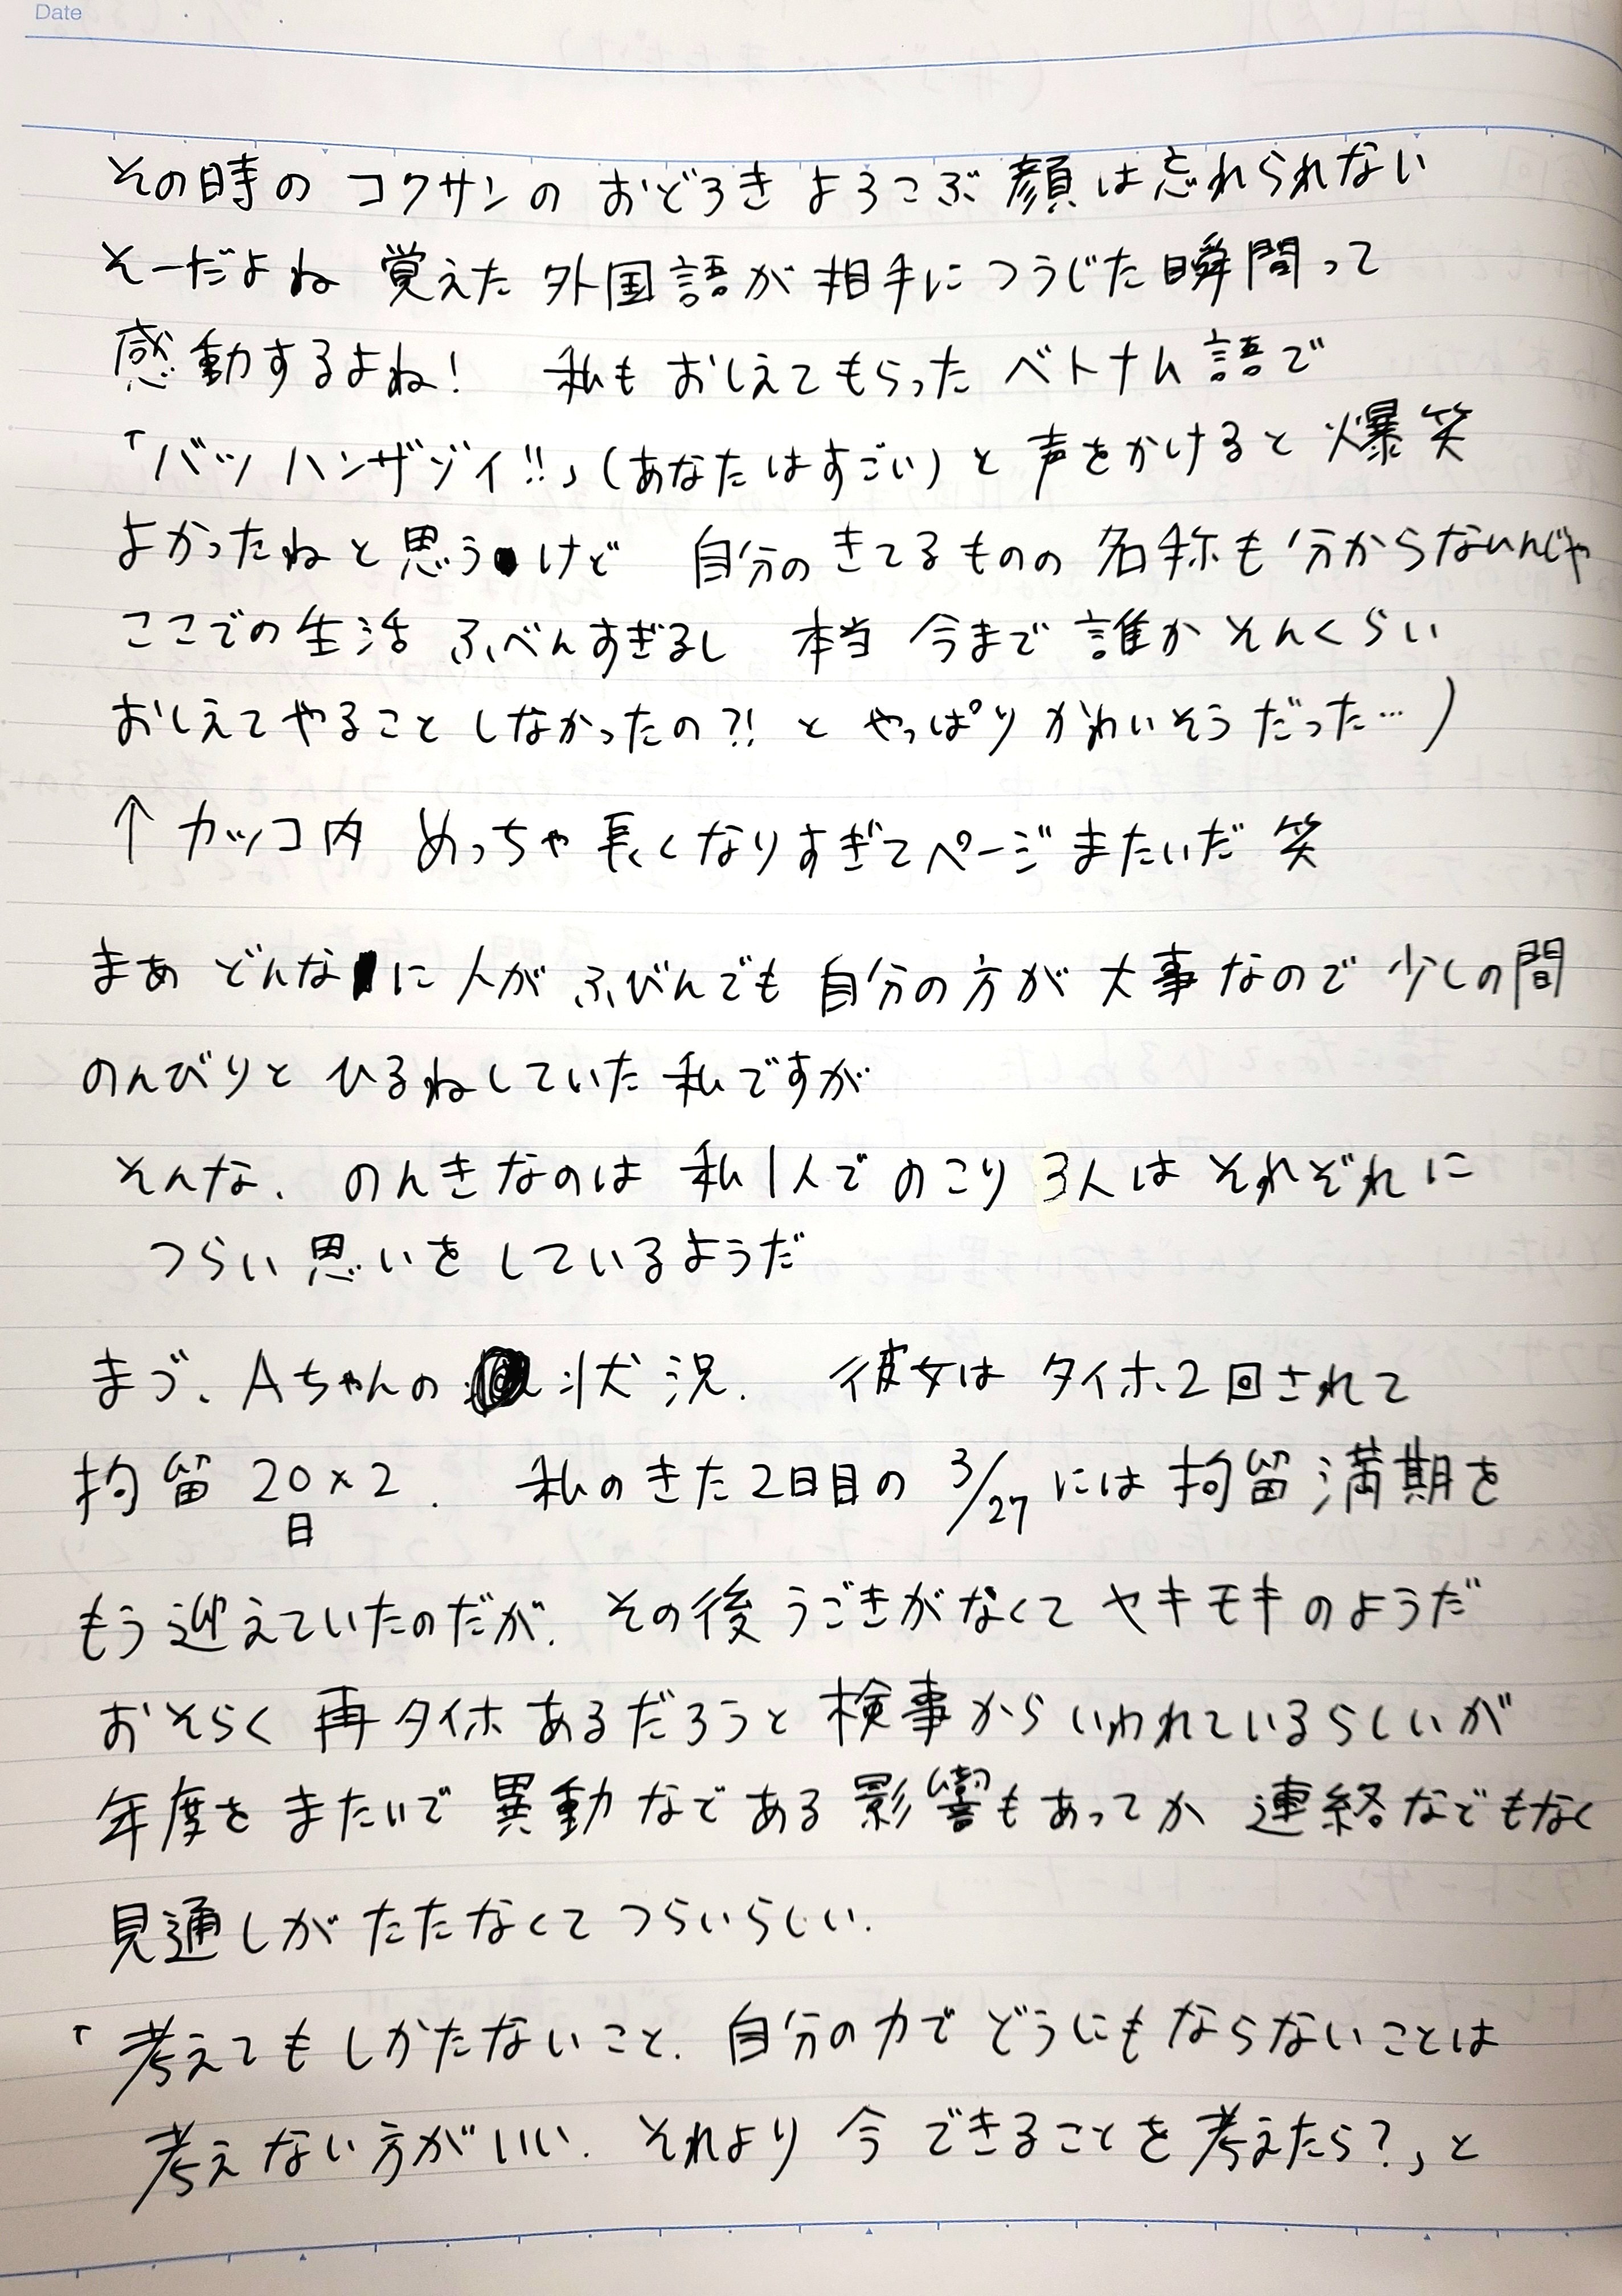 Date
その時の コクサンの おどろき よろこぶ 顔は忘れられない
そーだよね 覚えた 外国語が 相手につうじた瞬間って
感動するよね! 私も おしえてもらった ベトナム語で
「バッ ハンザゾイ!!」(あなたはすごい) と 声をかけると 爆笑
よかったねと思うけど 自分の きてるものの 名称も 分からないんじゃ
ここでの生活 ふべんすぎるし 本当 今まで 誰か そんくらい
おしえてやること しなかったの?! と やっぱり かわいそうだった…)
↑ カッコ内 めっちゃ 長くなりすぎて ページまたいだ 笑
まあ どんなに 人が ふびんでも 自分の方が 大事なので 少しの間
のんびりと ひるねしていた 私ですが
そんな、のんきなのは 私1人で のこり 3人は それぞれに
つらい思いを しているようだ
まづ、Aちゃんの 状況. 彼女は タイホ2回されて
拘留 20日×2. 私のきた2日目の 3/27 には 拘留満期を
もう迎えていたのだが. その後 うごきがなくて ヤキモキのようだ
おそらく 再タイホ あるだろうと 検事から いわれているらしいが
年度を またいで 異動などある 影響もあってか 連絡などもなく
見通しが たたなくて つらいらしい.
「考えてもしかたないこと. 自分の力で どうにもならないことは
考えない方がいい. それより 今 できることを 考えたら?」と